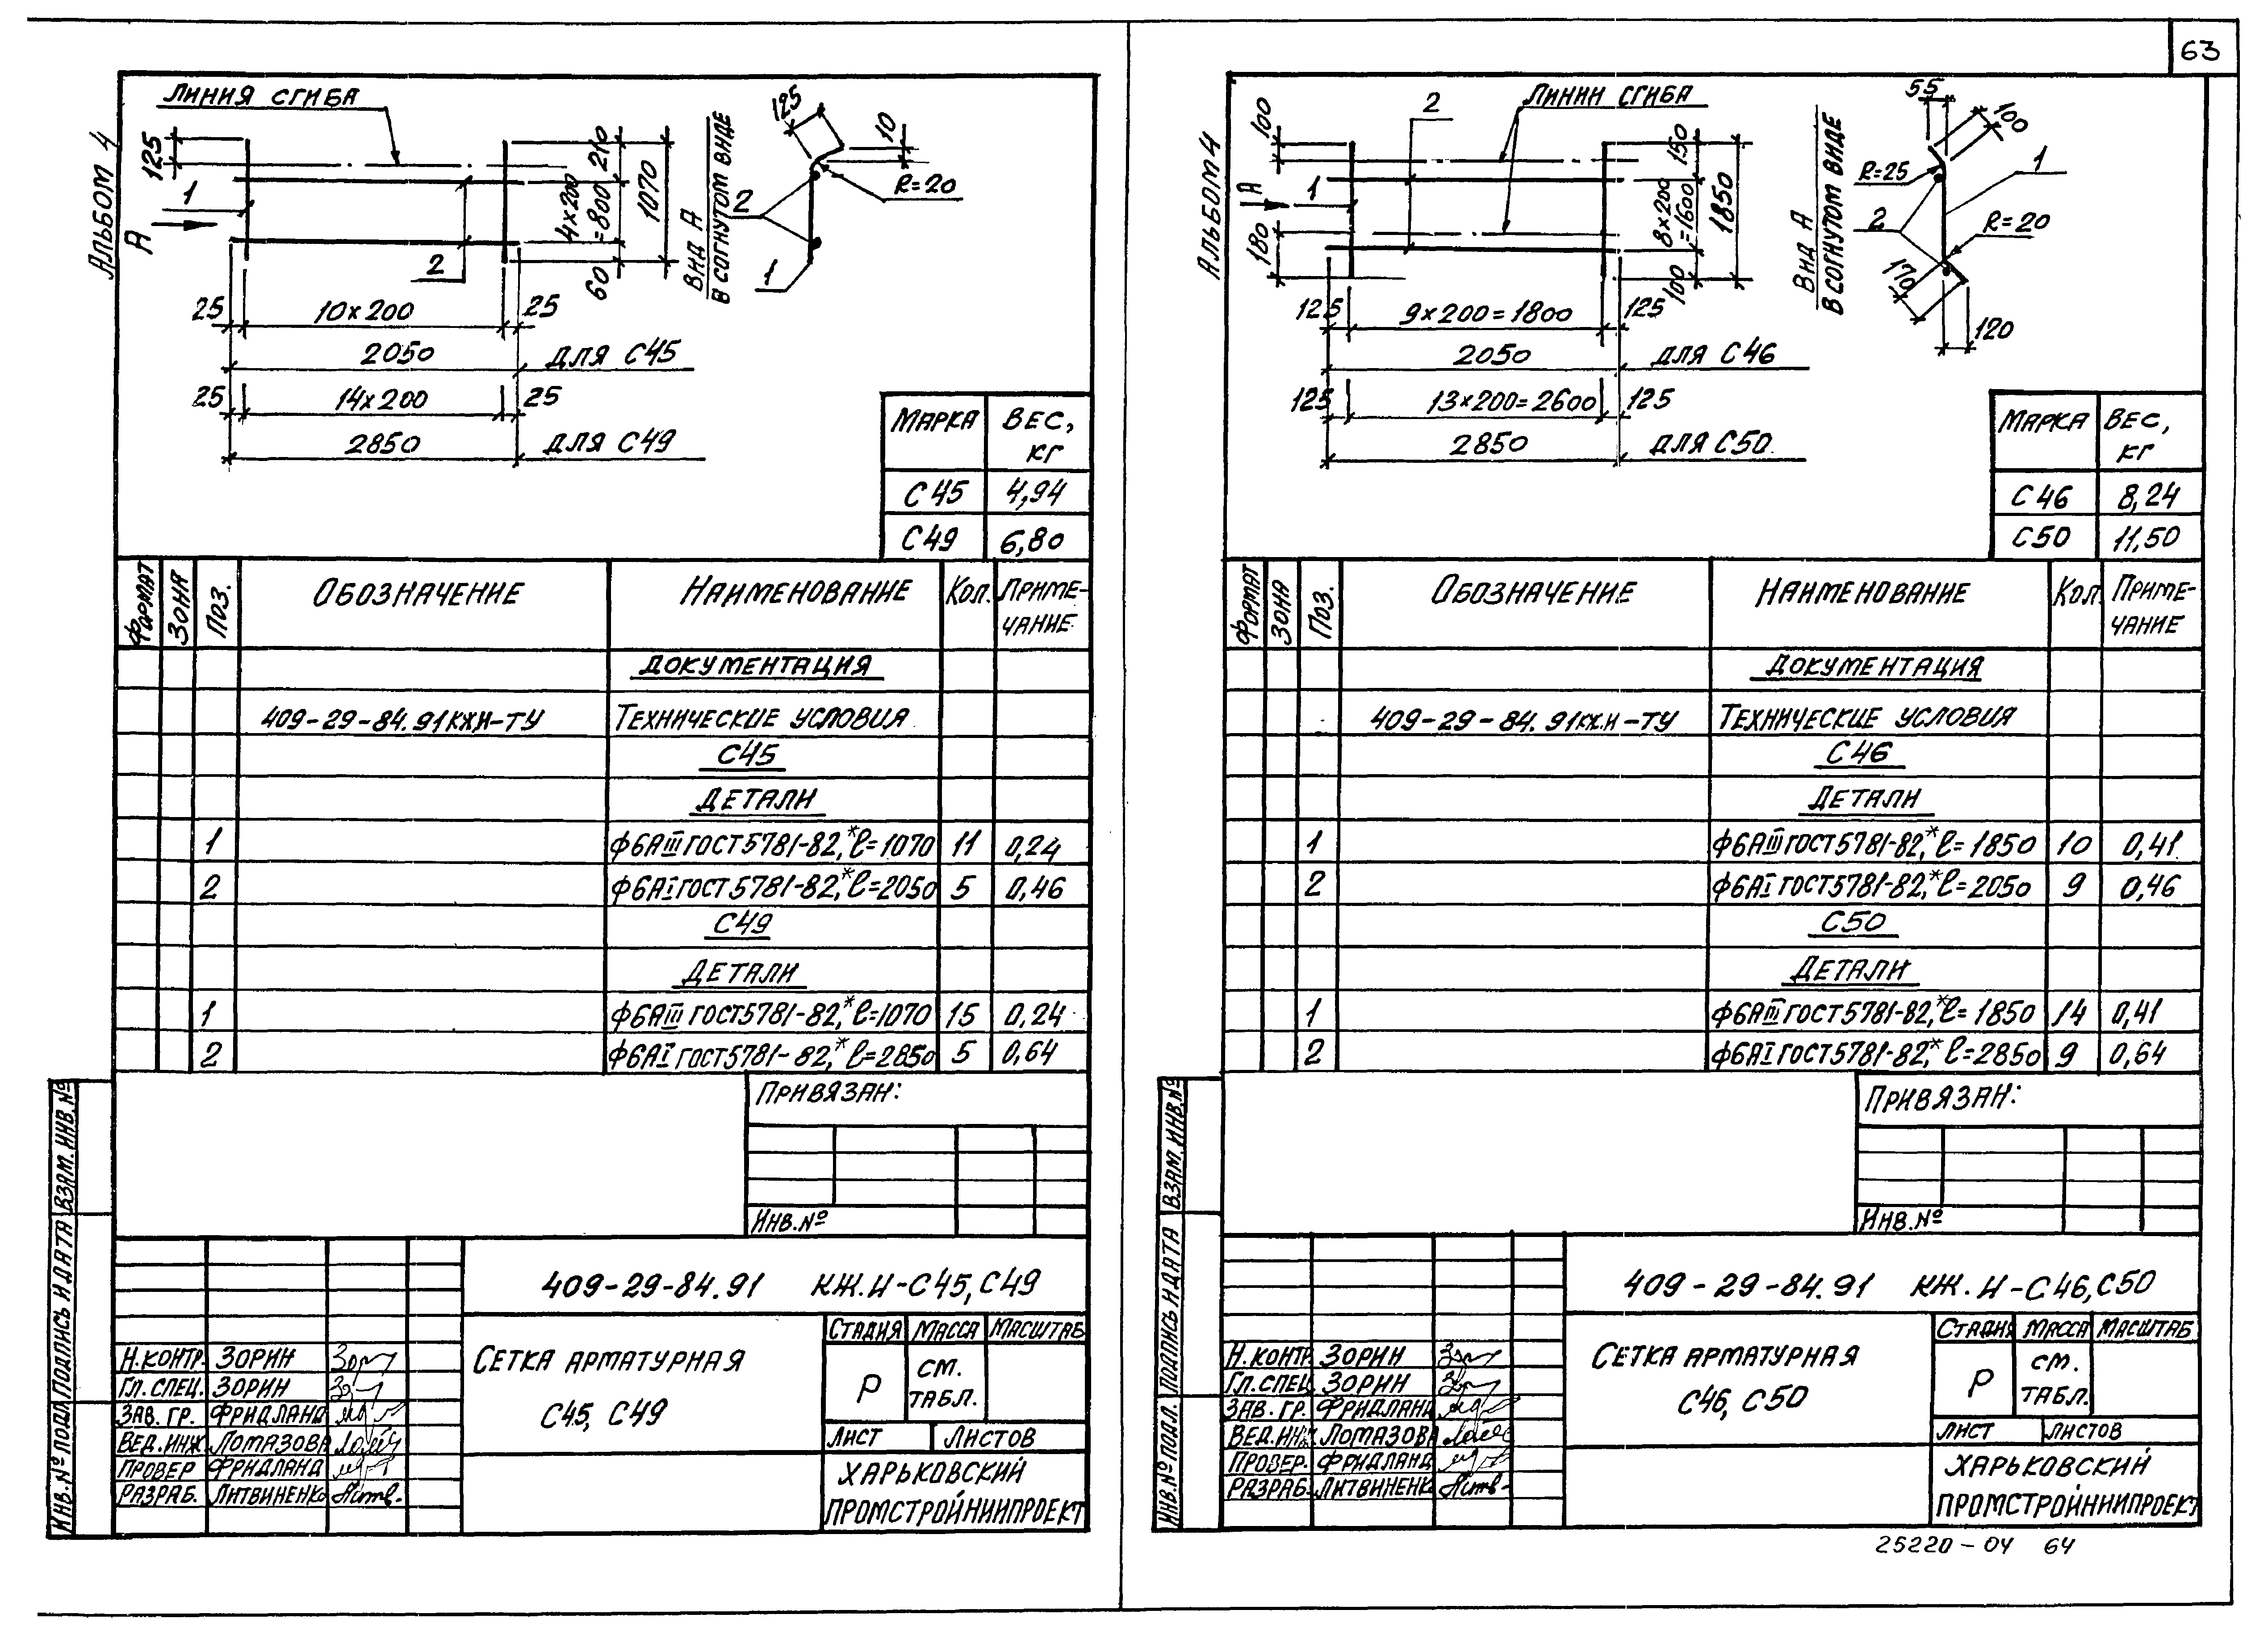 63
Альбом 4
Линия сгиба
125
1
А
2
210
4×200
=800
1070
60
25 10×200 25
2050 для С45
25 14×200 25
2850 для С49
Вид А
в согнутом виде
125
10
R=20
2
1
Марка Вес, кг
С45 4,94
С49 6,80
Формат Зона Поз. Обозначение Наименование Кол. Приме-
чание
Документация
409-29-84.91КЖИ-ТУ Технические условия
С45
Детали
1 Ф6АIII ГОСТ 5781-82,* ℓ=1070 11 0,24
2 Ф6АI ГОСТ 5781-82,* ℓ=2050 5 0,46
С49
Детали
1 Ф6АIII ГОСТ 5781-82,* ℓ=1070 15 0,24
2 Ф6АI ГОСТ 5781-82,* ℓ=2850 5 0,64
Привязан:
Инв.№
Взам. инв.№
Подпись и дата
Инв.№ подл.
409-29-84.91 КЖ.И-С45, С49
Сетка арматурная
С45, С49
Стадия Масса Масштаб
Р см.
табл.
Лист Листов
Харьковский
Промстройниипроект
Н.контр. Зорин
Гл.спец. Зорин
Зав. гр. Фридланд
Вед.инж Ломазова
Провер Фридланд
Разраб. Литвиненко
Альбом 4
Линии сгиба
100
180
1
А
2
150
8×200
=1600
1850
100
125 9×200=1800 125
2050 для С46
125 13×200=2600 125
2850 для С50
Вид А
в согнутом виде
55
100
R=25
1
2
R=20
170
120
Марка Вес,
кг
С46 8,24
С50 11,50
Формат Зона Поз. Обозначение Наименование Кол. Приме-
чание
Документация
409-29-84.91КЖ.И-ТУ Технические условия
С46
Детали
1 Ф6АIII ГОСТ 5781-82,* ℓ=1850 10 0,41
2 Ф6АI ГОСТ 5781-82,* ℓ=2050 9 0,46
С50
Детали
1 Ф6АIII ГОСТ 5781-82,* ℓ=1850 14 0,41
2 Ф6АI ГОСТ 5781-82,* ℓ=2850 9 0,64
Привязан:
Инв.№
Взам. инв.№
Подпись и дата
Инв.№ подл.
409-29-84.91 КЖ.И-С46, С50
Сетка арматурная
С46, С50
Стадия Масса Масштаб
Р см.
табл.
Лист Листов
Харьковский
Промстройниипроект
Н.контр Зорин
Гл.спец. Зорин
Зав. гр. Фридланд
Вед.инж Ломазова
Провер. Фридланд
Разраб. Литвиненко
25220-04 64